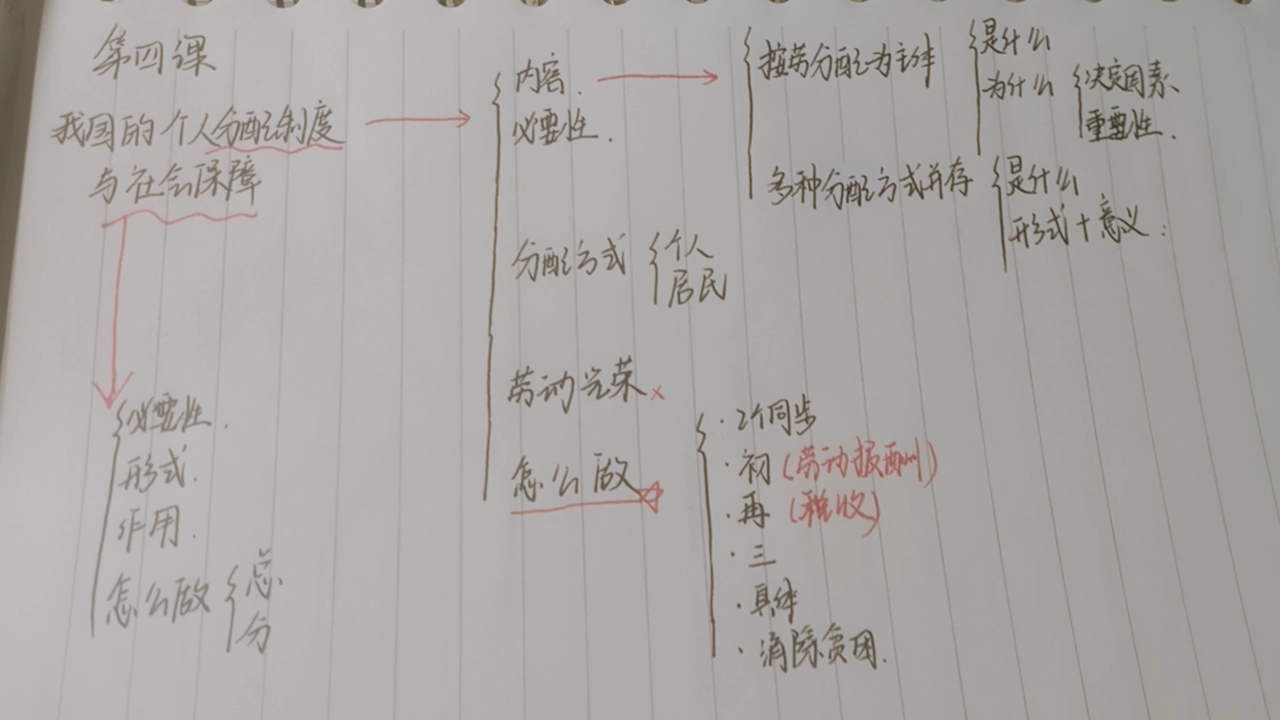 第四课
我国的个人分配制度
与社会保障
内容.
必要性.
按劳分配为主体
是什么
为什么
决定因素
重要性.
多种分配方式并存
是什么
形式+意义:
分配方式
个人
居民
劳动光荣×
怎么做
·2个同步
·初(劳动报酬)
·再(税收)
·三
·具体
·消除贫困.
必要性.
形式.
作用.
怎么做
总
分